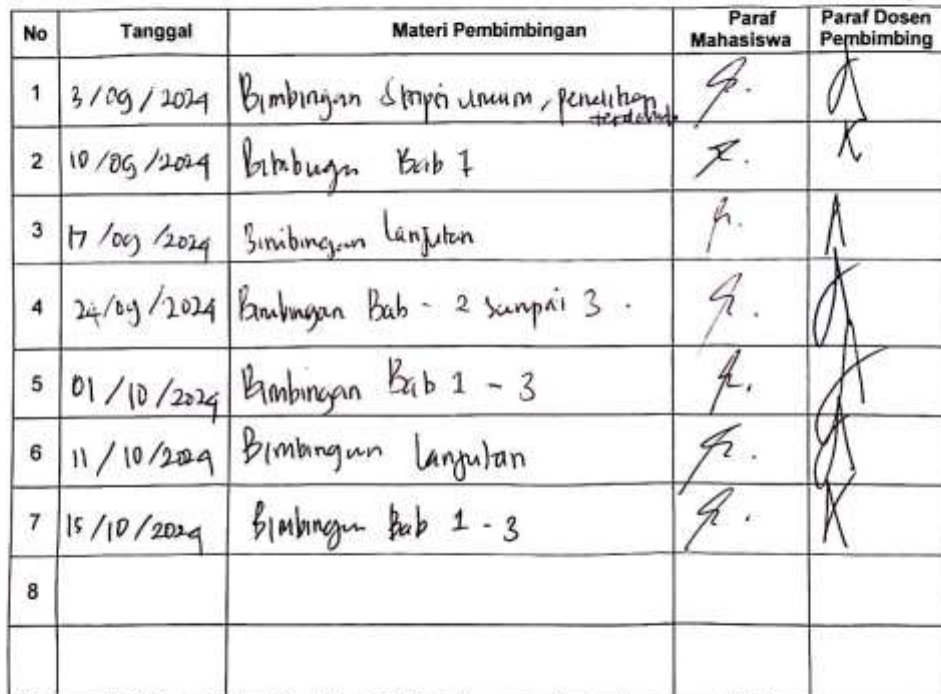 No Tanggal Materi Pembimbingan Paraf Mahasiswa Paraf Dosen Pembimbing
1 3/09/2024 Bimbingan Skripsi Umum, penelitian terdahulu
2 10/09/2024 Bimbingan Bab 1
3 17/09/2024 Bimbingan Lanjutan
4 24/09/2024 Bimbingan Bab - 2 sampai 3.
5 01/10/2024 Bimbingan Bab 1 - 3
6 11/10/2024 Bimbingan Lanjutan
7 15/10/2024 Bimbingan Bab 1 - 3
8